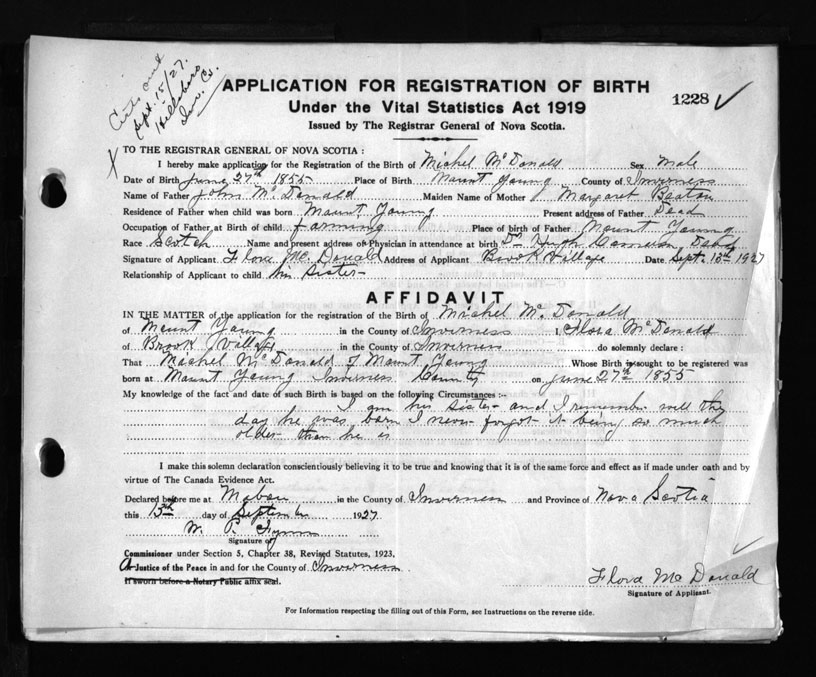 Sept. 15/27.
Hillsboro
Inv. Co.
APPLICATION FOR REGISTRATION OF BIRTH
1228 ✓
Under the Vital Statistics Act 1919
Issued by The Registrar General of Nova Scotia.
X TO THE REGISTRAR GENERAL OF NOVA SCOTIA :
I hereby make application for the Registration of the Birth of Michel McDonald Sex Male
Date of Birth June 27th 1855 Place of Birth Mount Young County of Inverness
Name of Father John McDonald Maiden Name of Mother Margaret Beaton
Residence of Father when child was born Mount Young Present address of Father Dead
Occupation of Father at Birth of child Farming Place of birth of Father Mount Young
Race Scotch Name and present address of Physician in attendance at birth Dr Hugh Cameron Dead
Signature of Applicant Flora McDonald Address of Applicant Brook Village Date Sept. 13th 1927
Relationship of Applicant to child his sister
AFFIDAVIT
IN THE MATTER of the application for the registration of the Birth of Michel McDonald
of Mount Young in the County of Inverness I, Flora McDonald
of Brook Village in the County of Inverness do solemnly declare :
That Michel McDonald of Mount Young Whose Birth is sought to be registered was
born at Mount Young Inverness County on June 27th 1855
My knowledge of the fact and date of such Birth is based on the following Circumstances :-
I am his sister and I remember well the
day he was born I never forgot it being so much
older than he is
I make this solemn declaration conscientiously believing it to be true and knowing that it is of the same force and effect as if made under oath and by
virtue of The Canada Evidence Act.
Declared before me at Mabou in the County of Inverness and Province of Nova Scotia
this 13th day of September 1927
W. P.
Signature of
Commissioner under Section 5, Chapter 38, Revised Statutes, 1923.
A Justice of the Peace in and for the County of Inverness
If sworn before a Notary Public affix seal.
Flora McDonald
Signature of Applicant.
For Information respecting the filling out of this Form, see Instructions on the reverse side.